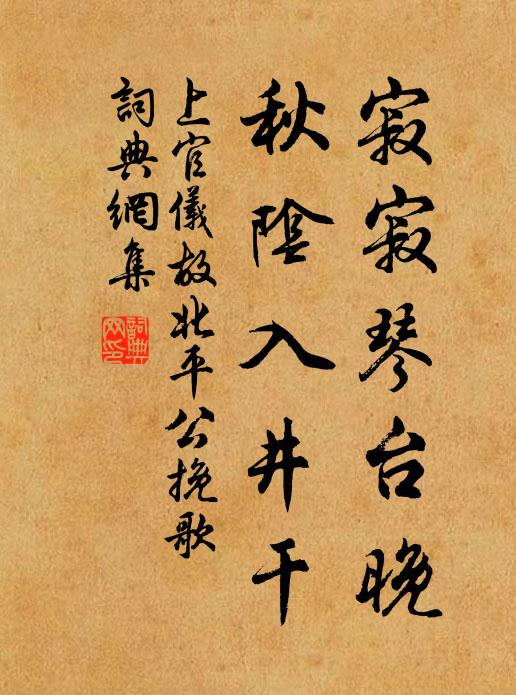 寂寂琴台晚
秋陰入井干
上官儀故北平公挽歌
詞典網集
詞典網印